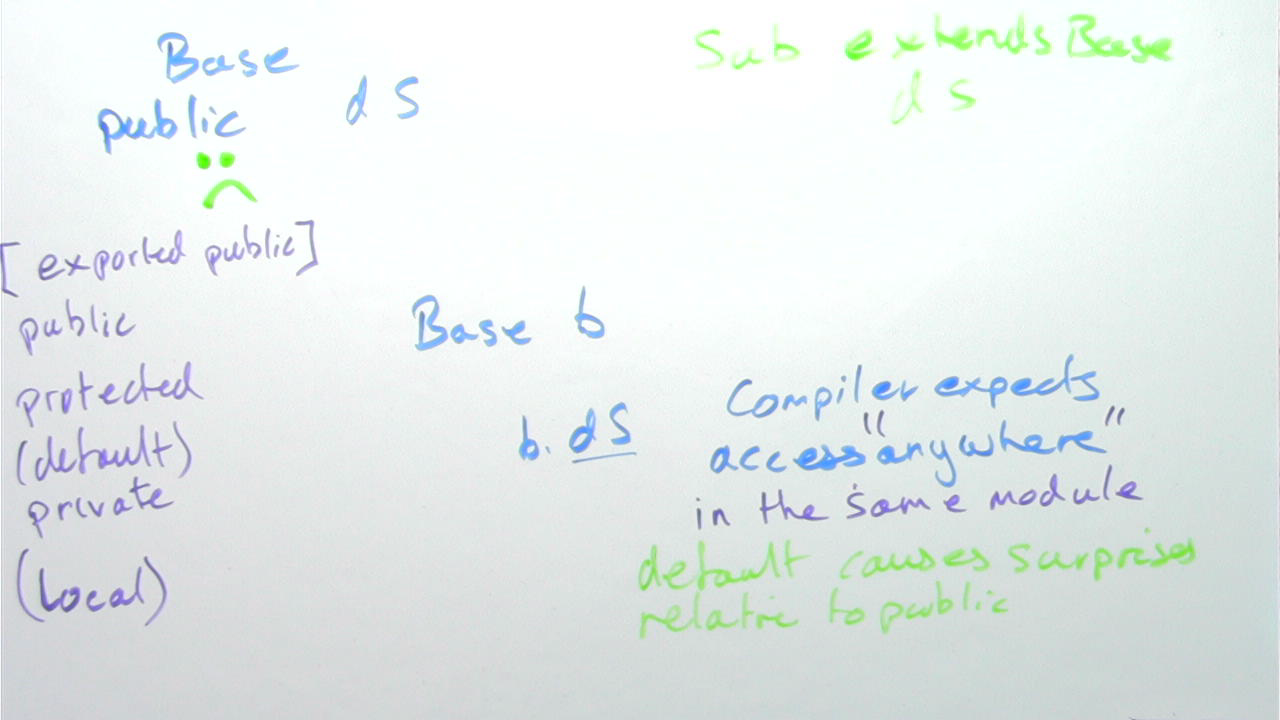 Base
public dS
Sub extends Base
dS
[exported public]
public
protected
(default)
private
(local)
Base b
b. dS
Compiler expects
access "anywhere"
in the same module
default causes surprises
relative to public